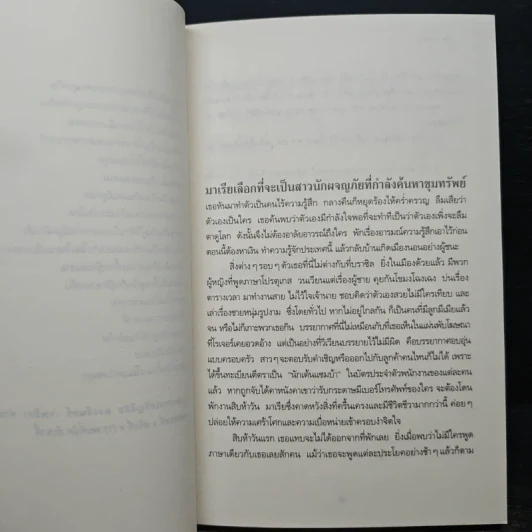 มาเรียเลือกที่จะเป็นสาวนักผจญภัยที่กำลังค้นหาขุมทรัพย์
เธอหันมาทำตัวเป็นคนไร้ความรู้สึก กลางคืนก็หยุดร้องไห้คร่ำครวญ ลืมเสียว่า
ตัวเองเป็นใคร เธอค้นพบว่าตัวเองมีกำลังใจพอที่จะทำทีเป็นว่าตัวเองเพิ่งจะลืม
ตาดูโลก ดังนั้นจึงไม่ต้องอาลัยอาวรณ์ถึงใคร พักเรื่องอารมณ์ความรู้สึกเอาไว้ก่อน
ตอนนี้ต้องหาเงิน ทำความรู้จักประเทศนี้ แล้วกลับบ้านเกิดเมืองนอนอย่างผู้ชนะ
สิ่งต่าง ๆ รอบ ๆ ตัวเธอที่นี่ไม่ต่างกับที่บราซิล ยิ่งในเมืองด้วยแล้ว มีพวก
ผู้หญิงที่พูดภาษาโปรตุเกส วนเวียนแต่เรื่องผู้ชาย คุยกันโขมงโฉงเฉง บ่นเรื่อง
ตารางเวลา มาทำงานสาย ไม่ไว้ใจเจ้านาย ชอบคิดว่าตัวเองสวยไม่มีใครเทียบ และ
เล่าเรื่องชายหนุ่มรูปงาม ซึ่งโดยทั่วไป หากไม่อยู่ไกลกัน ก็เป็นคนที่มีลูกมีเมียแล้ว
จน หรือไม่ก็เกาะพวกเธอกิน บรรยากาศที่นี่ไม่เหมือนกับที่เธอเห็นในแผ่นพับโฆษณา
ที่โรเจอร์เคยอวดอ้าง แต่เป็นอย่างที่วิเวียนบรรยายไว้ไม่มีผิด คือบรรยากาศอบอุ่น
แบบครอบครัว สาวๆ จะตอบรับคำเชิญหรือออกไปกับลูกค้าคนไหนก็ไม่ได้ เพราะ
ได้ขึ้นทะเบียนตีตราเป็น “นักเต้นแซมบ้า” ในบัตรประจำตัวพนักงานของแต่ละคน
แล้ว หากถูกจับได้คาหนังคาเขาว่ารับกระดาษมีเบอร์โทรศัพท์ของใคร จะต้องโดน
พักงานสิบห้าวัน มาเรียซึ่งคาดหวังสิ่งที่ครื้นเครงและมีชีวิตชีวามากกว่านี้ ค่อย ๆ
ปล่อยให้ความเศร้าโศกและความเบื่อหน่ายเข้าครอบงำจิตใจ
สิบห้าวันแรก เธอแทบจะไม่ได้ออกจากที่พักเลย ยิ่งเมื่อพบว่าไม่มีใครพูด
ภาษาเดียวกับเธอเลยสักคน แม้ว่าเธอจะพูดแต่ละประโยคอย่างช้า ๆ แล้วก็ตาม